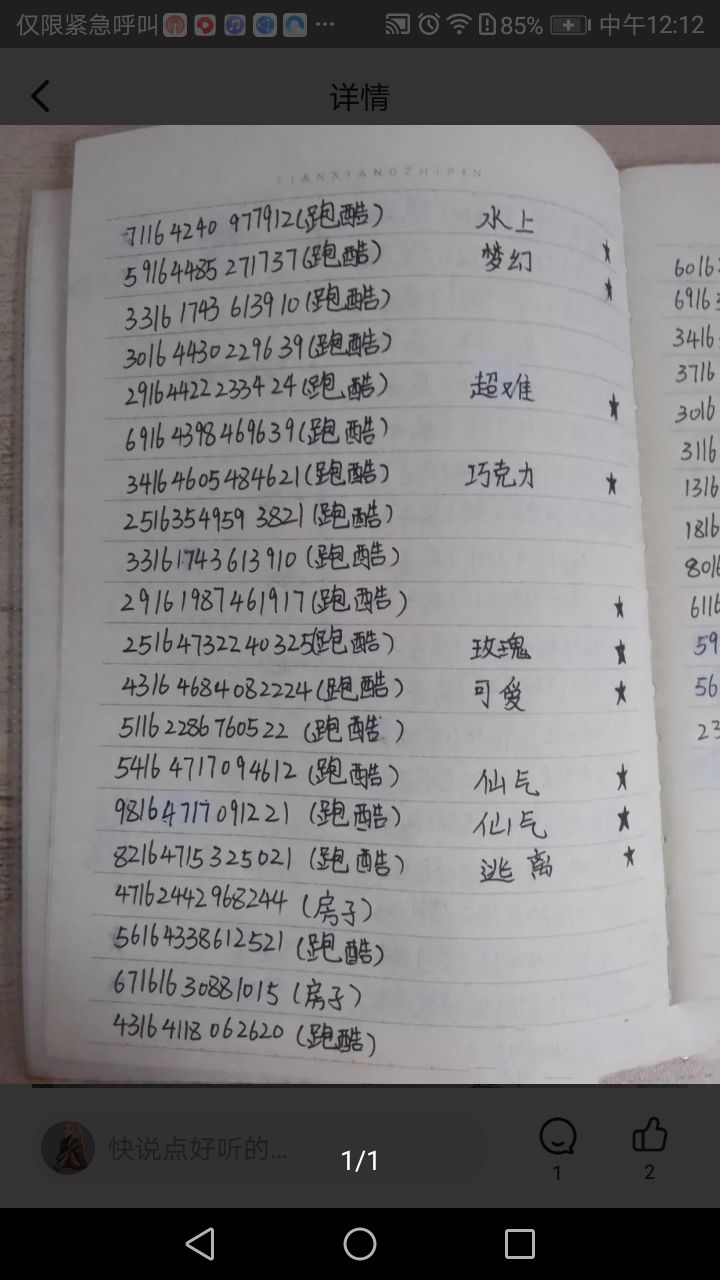 仅限紧急呼叫 ... 85% 中午12:12
详情
TIANXIANGZHIPIN
71164240 977912(跑酷) 水上
59164485 271737(跑酷) 梦幻 ★
3316 1743 613910(跑酷) ★
3016 4430229639(跑酷)
29164422233424(跑酷) 超难 ★
6916 4398469639(跑酷)
34164605484621(跑酷) 巧克力 ★
2516354959 3821(跑酷)
33161743613910(跑酷)
29161987461917(跑酷) ★
25164732240325(跑酷) 玫瑰 ★
4316 4684082224(跑酷) 可爱 ★
5116 2286760522 (跑酷)
5416 4717094612 (跑酷) 仙气 ★
98164717091221 (跑酷) 仙气 ★
82164715325021 (跑酷) 逃离 ★
47162442968244 (房子)
56164338612521 (跑酷)
67161630881015 (房子)
43164118062620 (跑酷)
6016
6916
3416
3716
3016
3116
1316
1816
8016
6116
59
56
23
快说点好听的...
1/1
1
2